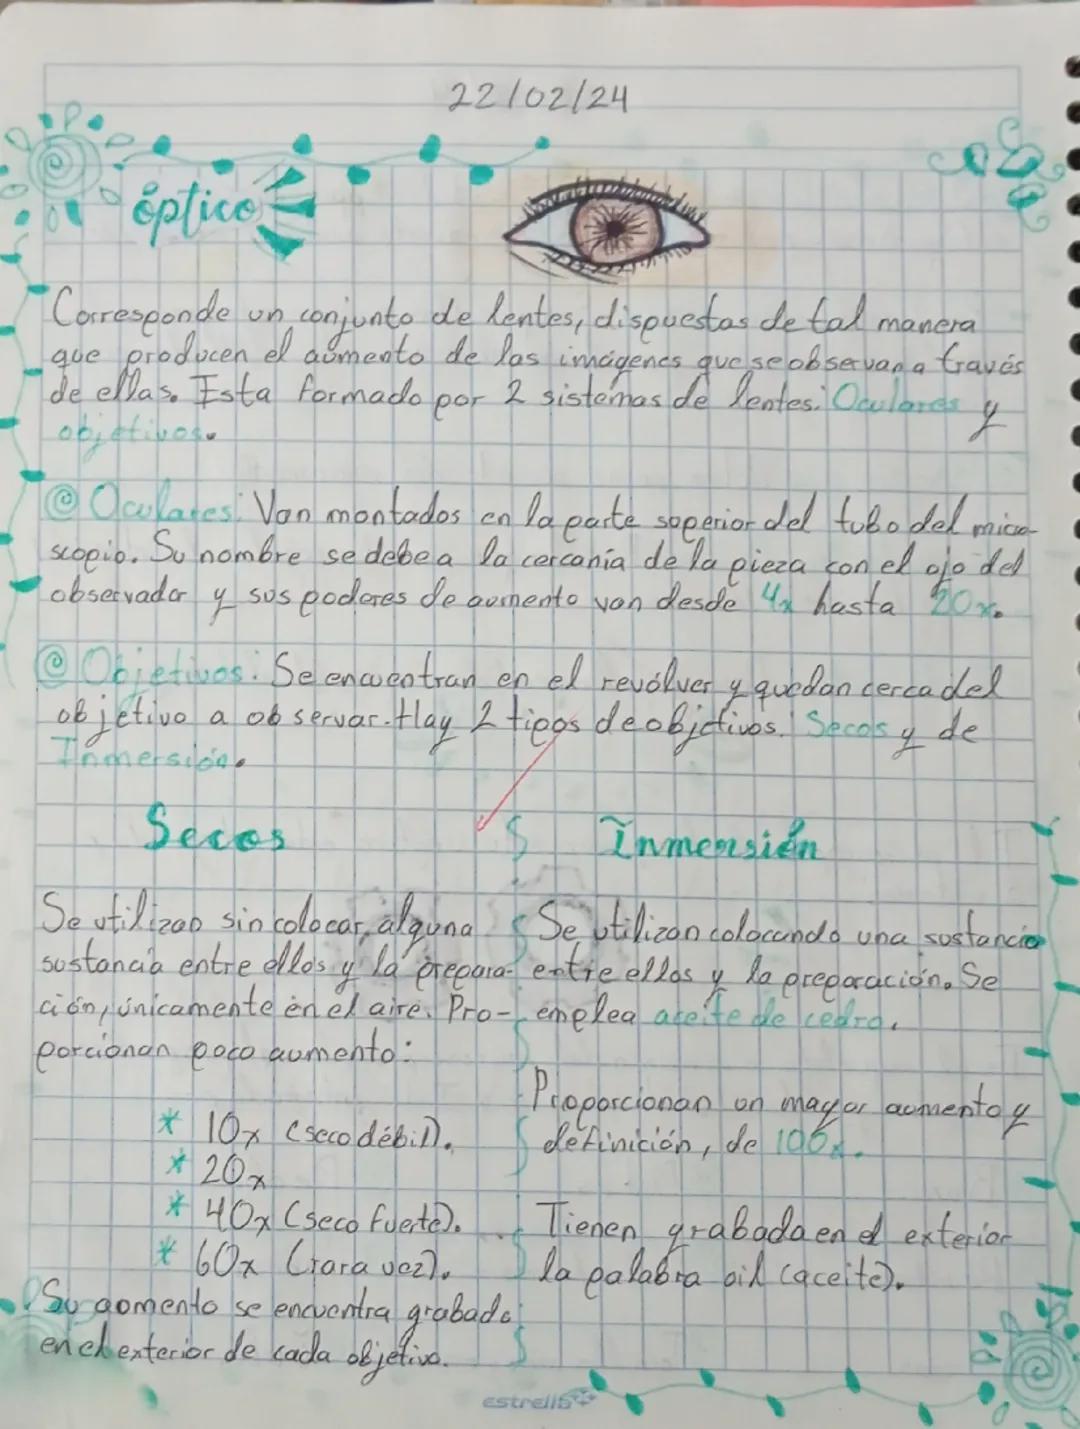 22/02/24
óptico
Corresponde un conjunto de lentes, dispuestas de tal manera
que producen el aumento de las imágenes que se observan a través
de ellas. Esta formado por 2 sistemas de lentes: Oculares y
objetivos.
Oculares: Van montados en la parte superior del tubo del micro-
scopio. Su nombre se debe a la cercanía de la pieza con el ojo del
observador y sus poderes de aumento van desde 4x hasta 20x.
Objetivos: Se encuentran en el revólver y quedan cerca del
objetivo a observar. Hay 2 tipos de objetivos: Secos y de
Inmersión.
Secos
Se utilizan sin colocar alguna
sustancia entre ellos y la prepara-
ción, únicamente en el aire. Pro-
porcionan poco aumento:
* 10x (seco débil).
* 20x
* 40x (seco fuerte).
* 60x (rara vez).
Su aumento se encuentra grabado
en el exterior de cada objetivo.
Inmensión
Se utilizan colocando una sustancia
entre ellos y la preparación. Se
emplea aceite de cedro.
Proporcionan un mayor aumento y
definición, de 100x.
Tienen grabada en el exterior
la palabra oil (aceite).
estrella